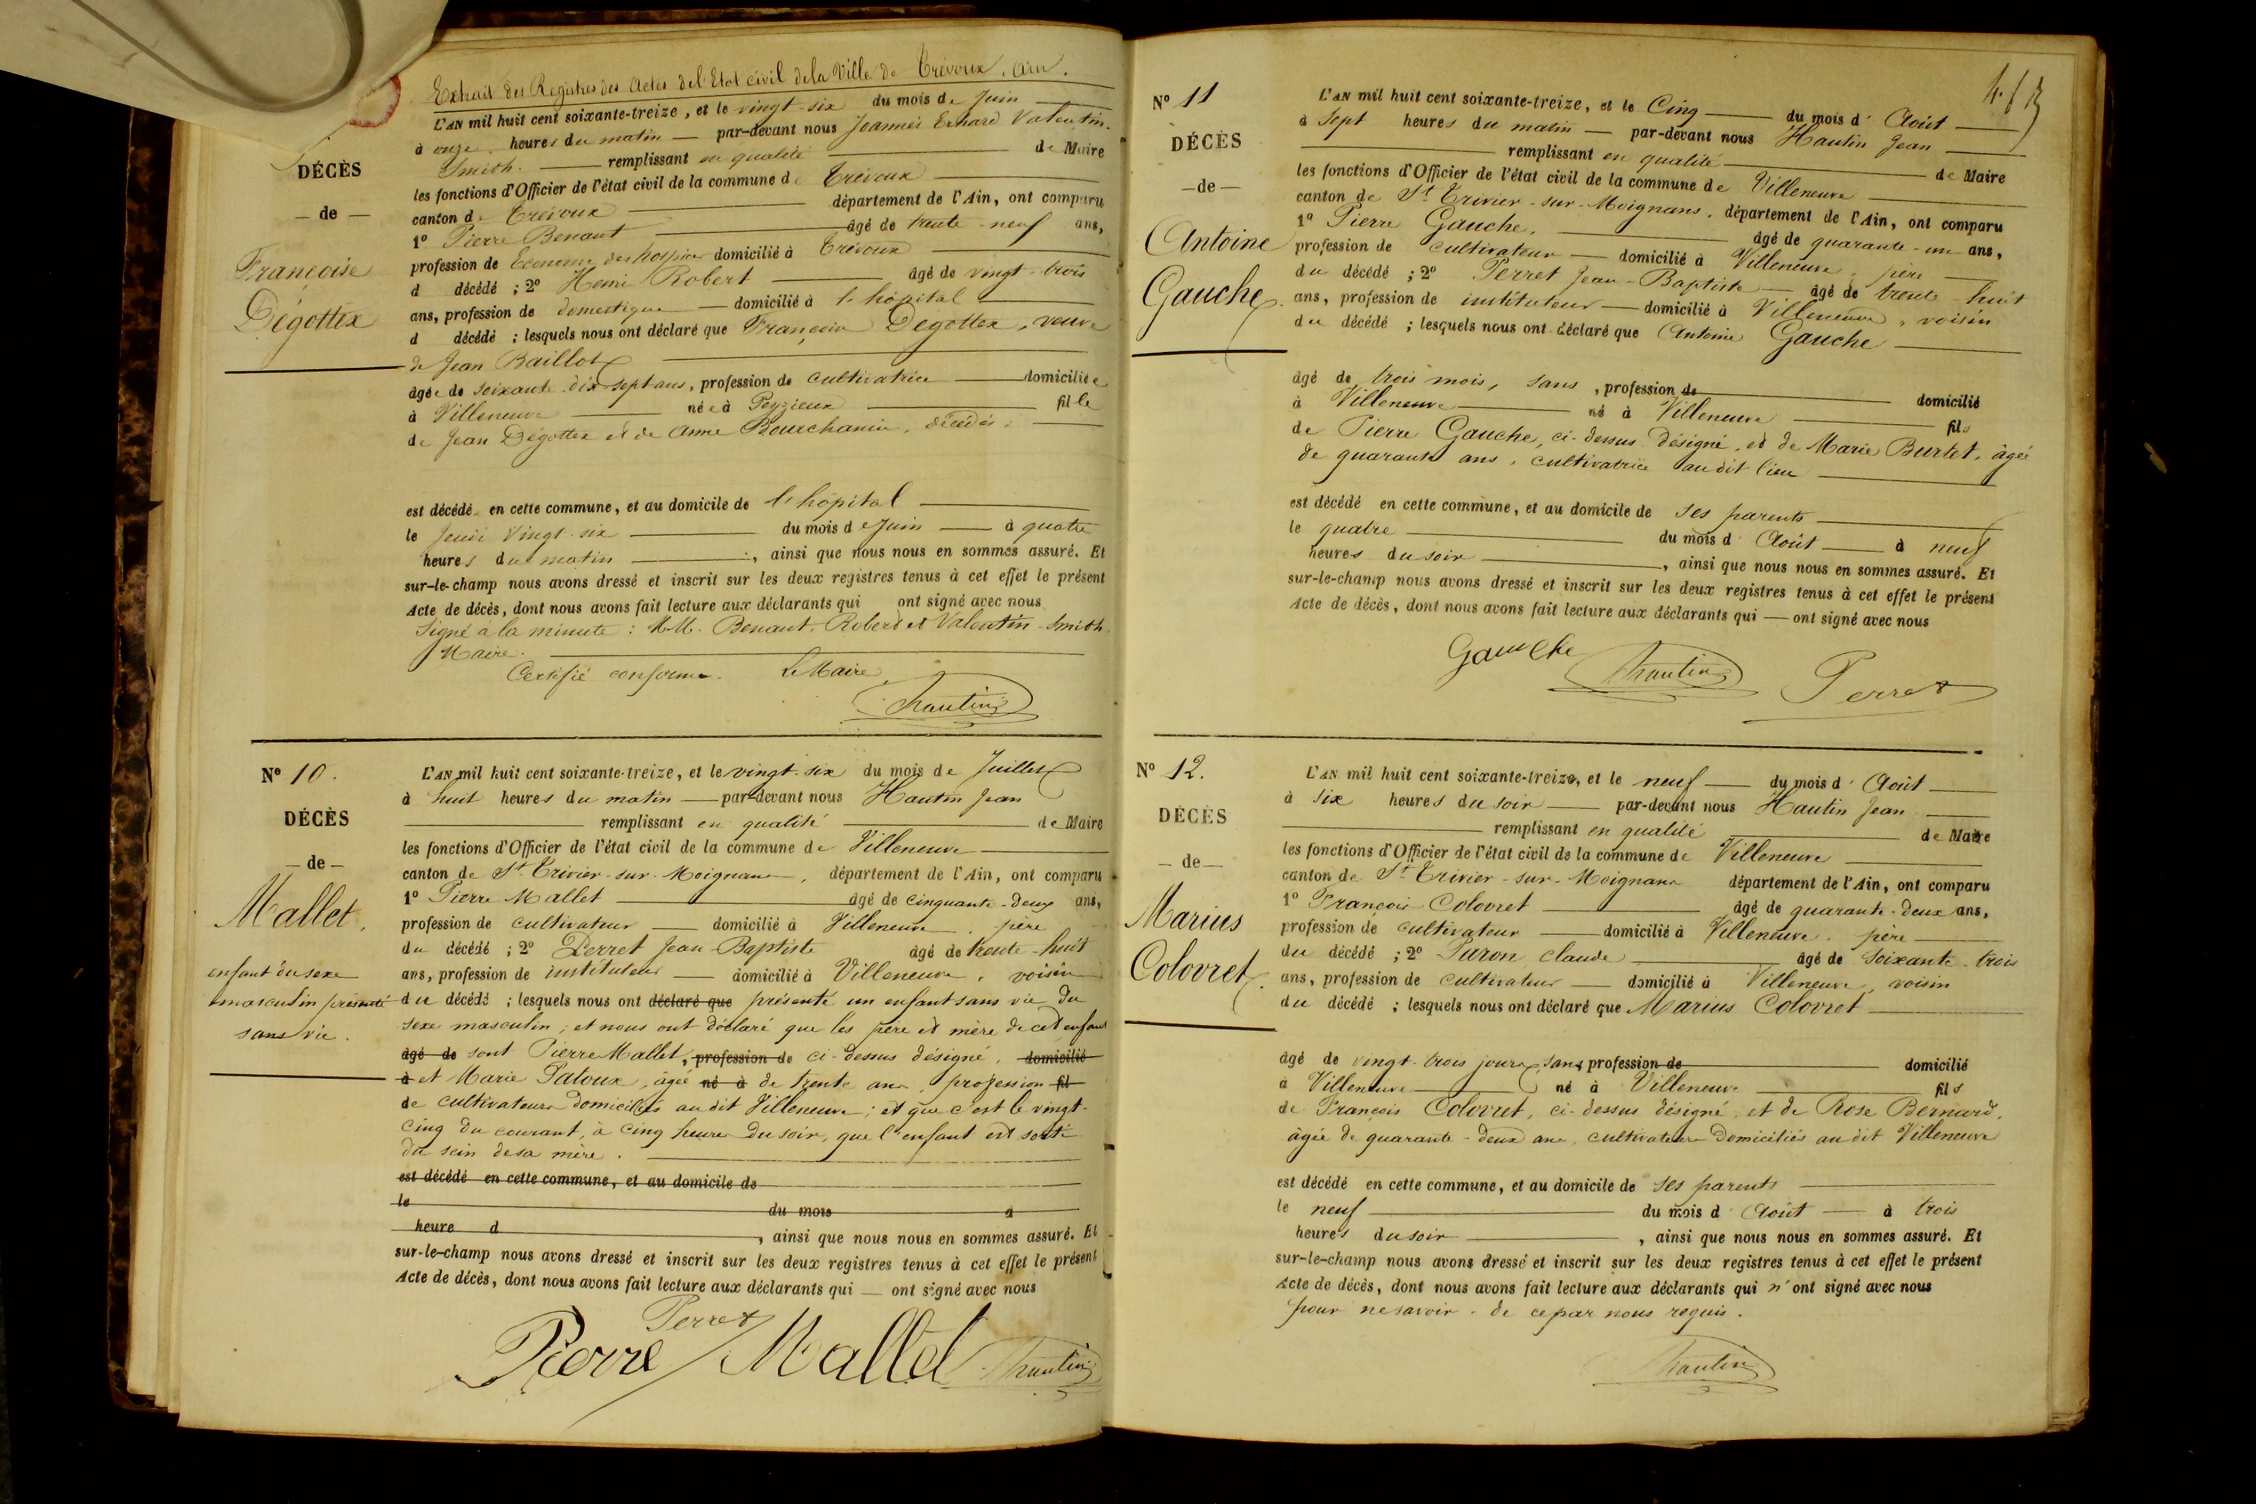 Extrait des Registres des Actes de l'Etat civil de la Ville de Trévoux, Ain.
DÉCÈS
— de —
Françoise
Dégottex
L'AN mil huit cent soixante-treize, et le vingt-six du mois de Juin
à onze heures du matin — par-devant nous Joannès Erhard Valentin-
Smith. remplissant en qualité de Maire
les fonctions d'Officier de l'état civil de la commune de Trévoux
canton de Trévoux département de l'Ain, ont comparu
1º Pierre Benaut âgé de trente-neuf ans,
profession de Econome des hospices domicilié à Trévoux
d décédé ; 2º Henri Robert âgé de vingt-trois
ans, profession de domestique domicilié à l'hôpital
d décédé ; lesquels nous ont déclaré que Françoise Dégottex, veuve
de Jean Baillot
âgée de soixante-dix-sept ans, profession de cultivatrice domiciliée
à Villeneuve née à Peyzieux fille
de Jean Dégottex et de Anne Bourchanin, décédés.
est décédé en cette commune, et au domicile de l'hôpital
le jeudi vingt-six du mois de Juin à quatre
heures du matin, ainsi que nous nous en sommes assuré. Et
sur-le-champ nous avons dressé et inscrit sur les deux registres tenus à cet effet le présent
Acte de décès, dont nous avons fait lecture aux déclarants qui ont signé avec nous
Signé à la minute : M.M. Benaut, Robert et Valentin-Smith
Maire.
Certifié conforme. Le Maire
Jhautin
Nº 10.
DÉCÈS
— de —
Mallet,
enfant du sexe
masculin présenté
sans vie.
L'AN mil huit cent soixante-treize, et le vingt-six du mois de Juillet
à huit heures du matin — par-devant nous Hautin Jean
remplissant en qualité de Maire
les fonctions d'Officier de l'état civil de la commune de Villeneuve
canton de St Trivier-sur-Moignans, département de l'Ain, ont comparu
1º Pierre Mallet âgé de cinquante-deux ans,
profession de cultivateur — domicilié à Villeneuve, père
du décédé ; 2º Perret Jean-Baptiste âgé de trente-huit
ans, profession de instituteur — domicilié à Villeneuve, voisin
du décédé ; lesquels nous ont déclaré que présenté un enfant sans vie du
sexe masculin, et nous ont déclaré que les père et mère de cet enfant
âgé de sont Pierre Mallet, profession de ci-dessus désigné, domicilié
à et Marie Patoux, âgée né à de trente ans, profession fil
de cultivateurs domiciliés au dit Villeneuve ; et que c'est le vingt-
cinq du courant, à cinq heures du soir, que l'enfant est sorti
du sein de sa mère.
est décédé en cette commune, et au domicile de
le du mois à
heure d, ainsi que nous nous en sommes assuré. Et
sur-le-champ nous avons dressé et inscrit sur les deux registres tenus à cet effet le présent
Acte de décès, dont nous avons fait lecture aux déclarants qui — ont signé avec nous
Perret
Pierre Mallet Jhautin
Nº 11
DÉCÈS
— de —
Antoine
Gauche.
L'AN mil huit cent soixante-treize, et le Cinq du mois d'Août
à Sept heures du matin — par-devant nous Hautin Jean
remplissant en qualité de Maire
les fonctions d'Officier de l'état civil de la commune de Villeneuve
canton de St Trivier-sur-Moignans, département de l'Ain, ont comparu
1º Pierre Gauche, âgé de quarante-un ans,
profession de cultivateur — domicilié à Villeneuve, père
du décédé ; 2º Perret Jean-Baptiste — âgé de trente-huit
ans, profession de instituteur — domicilié à Villeneuve, voisin
du décédé ; lesquels nous ont déclaré que Antoine Gauche
âgé de trois mois, sans, profession de domicilié
à Villeneuve né à Villeneuve fils
de Pierre Gauche, ci-dessus désigné, et de Marie Burtet, âgée
de quarante ans, cultivatrice au dit lieu
est décédé en cette commune, et au domicile de ses parents
le quatre du mois d'Août — à neuf
heures du soir, ainsi que nous nous en sommes assuré. Et
sur-le-champ nous avons dressé et inscrit sur les deux registres tenus à cet effet le présent
Acte de décès, dont nous avons fait lecture aux déclarants qui — ont signé avec nous
Gauche Jhautin Perret
Nº 12.
DÉCÈS
— de —
Marius
Colovret.
L'AN mil huit cent soixante-treize, et le neuf — du mois d'Août
à six heures du soir — par-devant nous Hautin Jean
remplissant en qualité de Maire
les fonctions d'Officier de l'état civil de la commune de Villeneuve
canton de St Trivier-sur-Moignans département de l'Ain, ont comparu
1º François Colovret âgé de quarante-deux ans,
profession de cultivateur — domicilié à Villeneuve, père
du décédé ; 2º Puron Claude âgé de soixante-trois
ans, profession de cultivateur — domicilié à Villeneuve, voisin
du décédé ; lesquels nous ont déclaré que Marius Colovret
âgé de vingt-trois jours, sans profession de domicilié
à Villeneuve né à Villeneuve fils
de François Colovret, ci-dessus désigné, et de Rose Bernard,
âgée de quarante-deux ans, cultivateurs domiciliés au dit Villeneuve
est décédé en cette commune, et au domicile de ses parents
le neuf du mois d'Août — à trois
heures du soir, ainsi que nous nous en sommes assuré. Et
sur-le-champ nous avons dressé et inscrit sur les deux registres tenus à cet effet le présent
Acte de décès, dont nous avons fait lecture aux déclarants qui n'ont signé avec nous
pour ne savoir. de ce par nous requis.
Jhautin